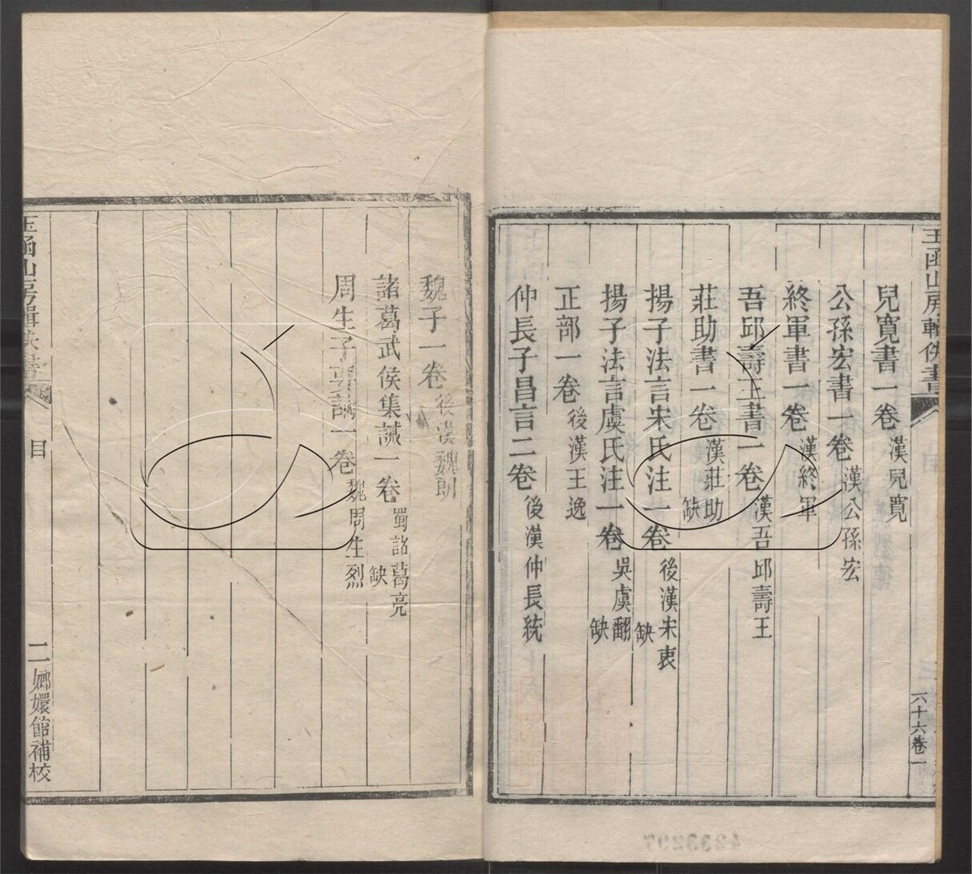 玉函山房輯佚書
六十六卷一
兒寬書一卷 漢兒寬
公孫宏書一卷 漢公孫宏
終軍書一卷 漢終軍
吾邱壽王書一卷 漢吾邱壽王
莊助書一卷 漢莊助 缺
揚子法言宋氏注一卷 後漢宋衷 缺
揚子法言虞氏注一卷 吳虞翻 缺
正部一卷 後漢王逸
仲長子昌言二卷 後漢仲長統
魏子一卷 後漢魏朗
諸葛武侯集誡一卷 蜀諸葛亮 缺
周生子要論一卷 魏周生烈
玉函山房輯佚書 目 二 嫏嬛館補校